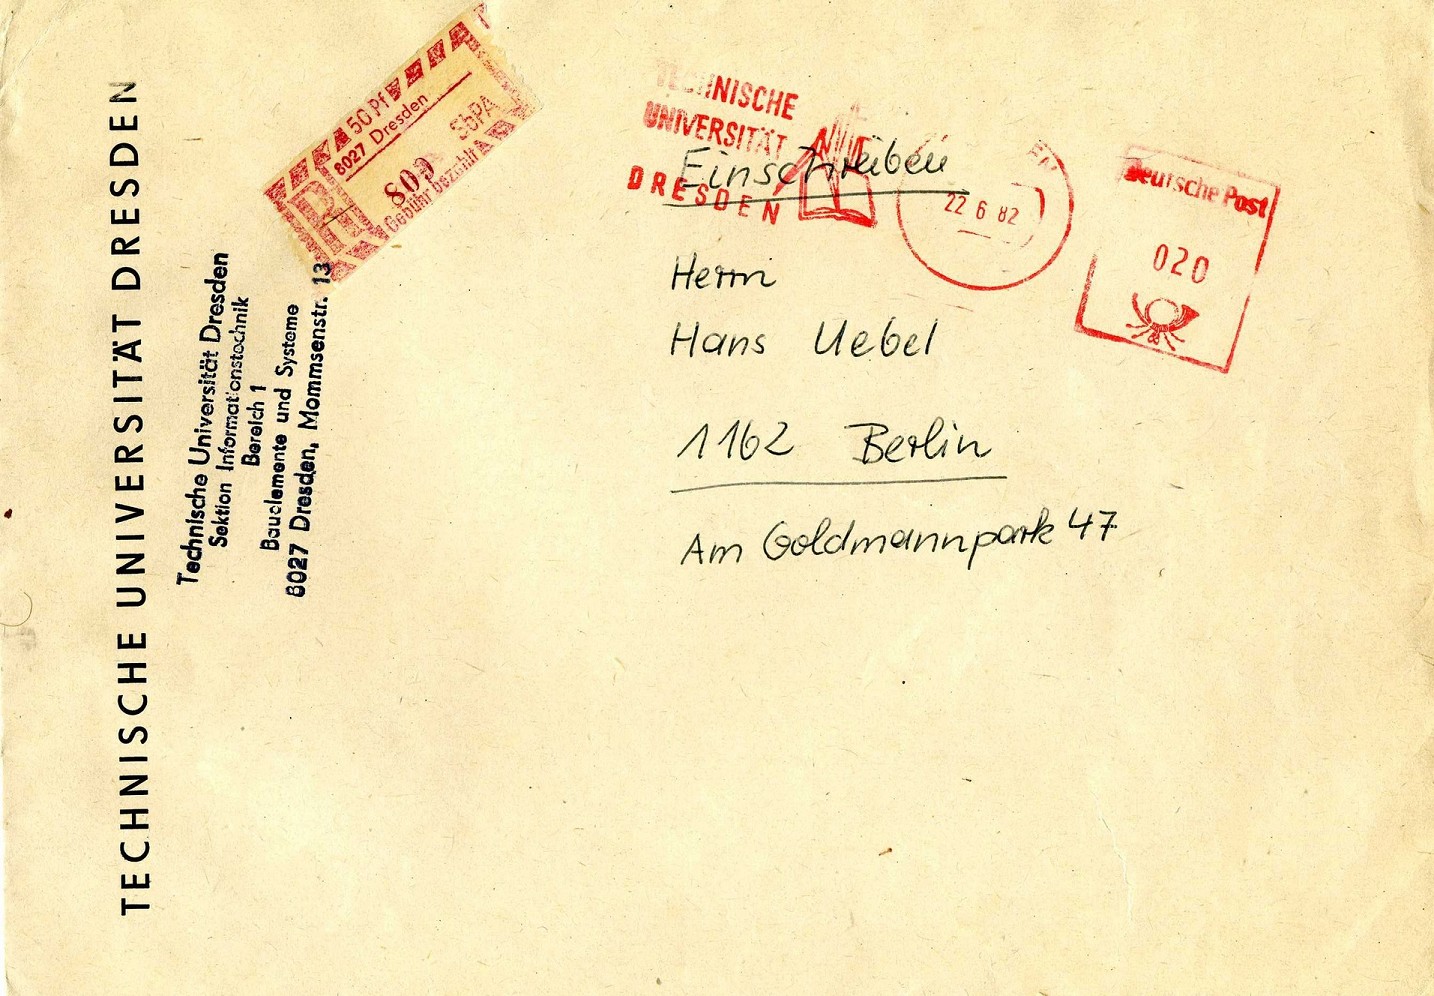 TECHNISCHE UNIVERSITÄT DRESDEN
Technische Universität Dresden
Sektion Informationstechnik
Bereich 1
Bauelemente und Systeme
8027 Dresden, Mommsenstr. 13
50 Pf
8027 Dresden
R
809
SbPA
Gebühr bezahlt
TECHNISCHE
UNIVERSITÄT
DRESDEN
22 6 82
Deutsche Post
020
Einschreiben
Herrn
Hans Uebel
1162 Berlin
Am Goldmannpark 47